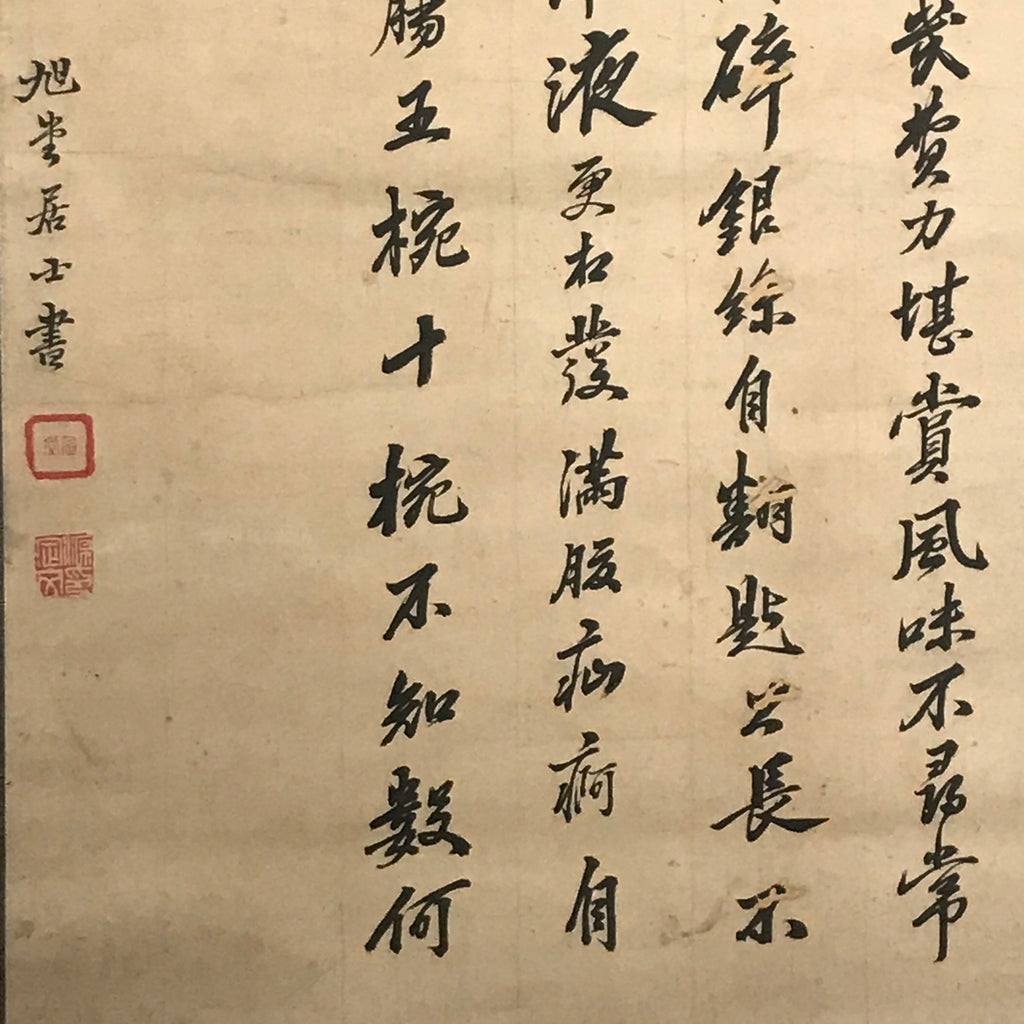 費力堪賞風味不尋常
碎銀線自翻匙公長不
液更相發滿腹疝痾自
腸五椀十椀不知數何
旭堂居士書